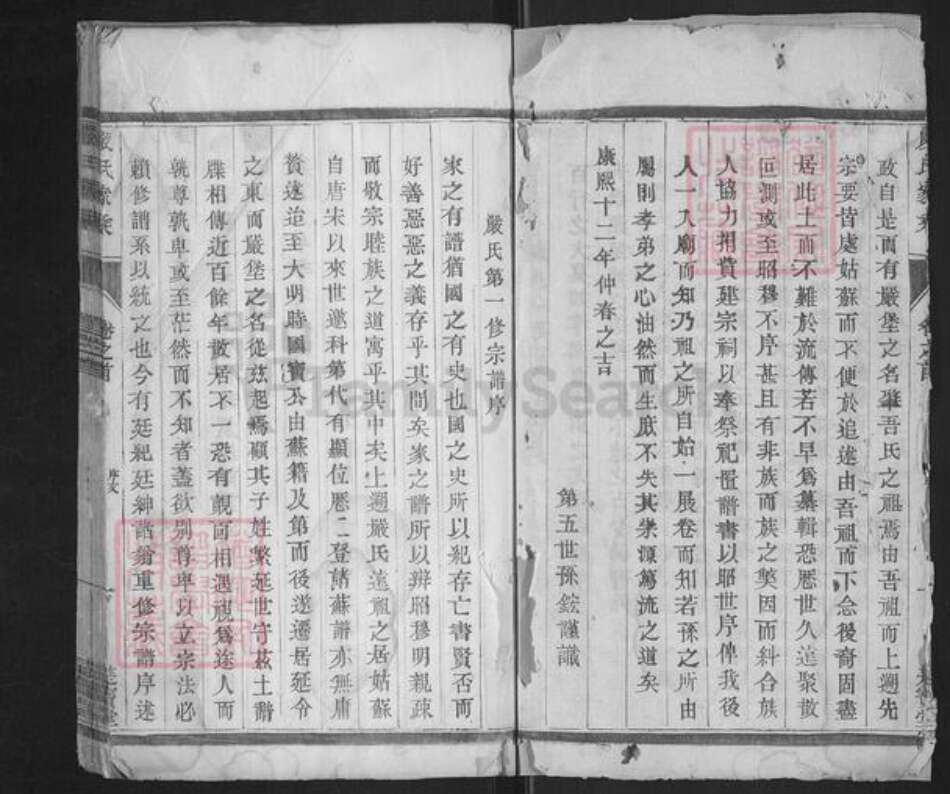 故自是而有嚴堡之名肇吾氏之祖焉由吾祖而上遡先
宗要皆處姑蘇而不便於追述由吾祖而下念後裔固盡
居此土而不難於流傳若不早爲纂輯恐歷世久遠聚散
叵測或至昭穆不序甚且有非族而族之獘因而糾合族
人協力捐貲建宗祠以奉祭祀置譜書以昭世序俾我後
人一入廟而知乃祖之所自始一展卷而知若孫之所由
屬則孝弟之心油然而生庶不失其崇源篤流之道矣
康熙十二年仲春之吉
第五世孫銓謹識
嚴氏第一修宗譜序
家之有譜猶國之有史也國之史所以紀存亡書賢否而
好善惡惡之義存乎其間矣家之譜所以辨昭穆明親疎
而敬宗睦族之道寓乎其中矣上遡嚴氏遠祖之居姑蘇
自唐宋以來世遂科第代有顯位歷二登諸蘇譜亦無庸
贅述迨至大明時國寶公由蘇籍及第而後遂遷居延令
之東而嚴堡之名從茲起焉顧其子姓繁延世守茲土譜
牒相傳近百餘年散居不一恐有覿面相遇視爲途人而
孰尊孰卑或至茫然而不知者蓋欲別尊卑以立宗法必
賴修譜系以統之也今有廷紀廷紳諸翁重修宗譜序述
嚴氏家乘
卷之首
序文
FamilySearch